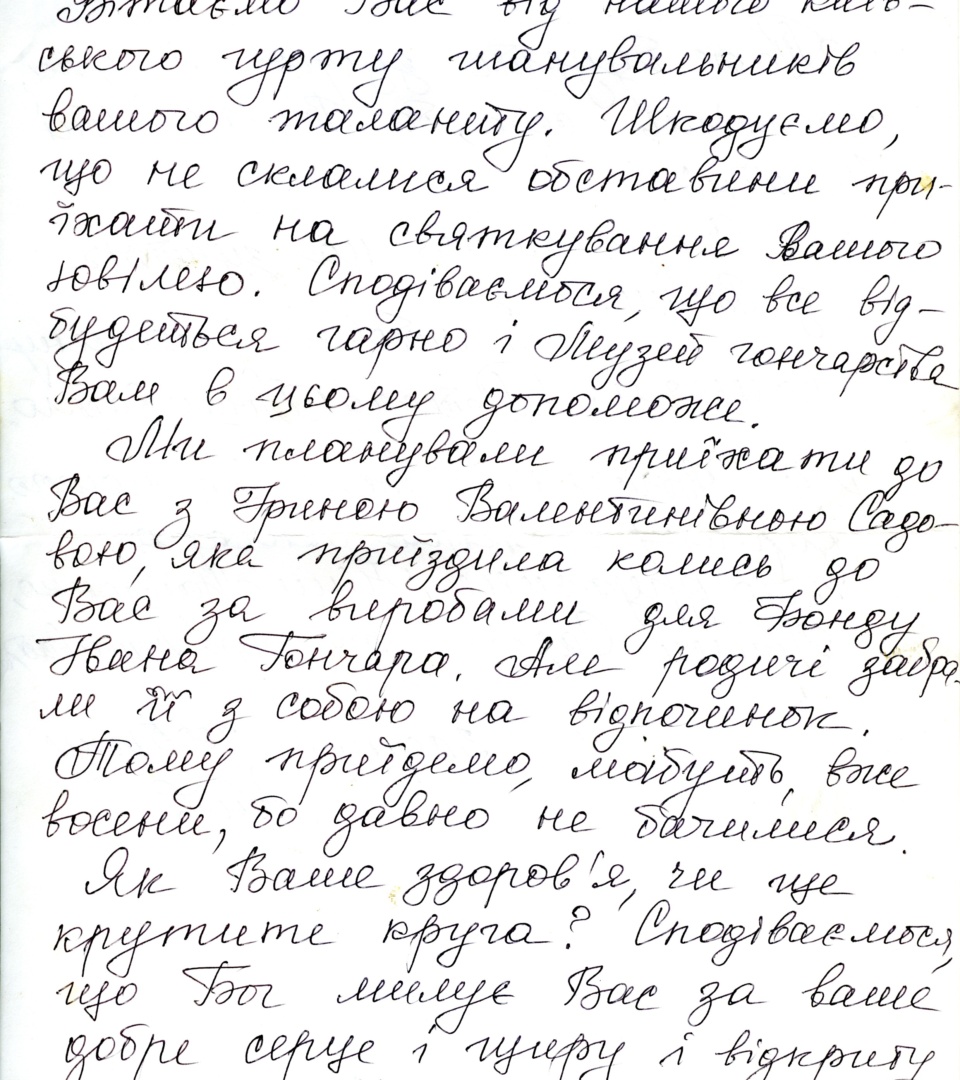 Вітаємо Вас від нашого київ-
ського гурту шанувальників
вашого таланту. Шкодуємо,
що не склалися обставини при-
їхати на святкування Вашого
ювілею. Сподіваємося, що все від-
будеться гарно і Музей гончарства
Вам в цьому допоможе.
Ми планували приїхати до
Вас з Іриною Валентинівною Садо-
вою, яка приїздила колись до
Вас за виробами для Фонду
Івана Гончара. Але родичі забра-
ли її з собою на відпочинок.
Тому приїдемо, мабуть, вже
восени, бо давно не бачилися.
Як Ваше здоров'я, чи ще
крутите круга? Сподіваємося,
що Бог милує Вас за ваше
добре серце і щиру і відкриту